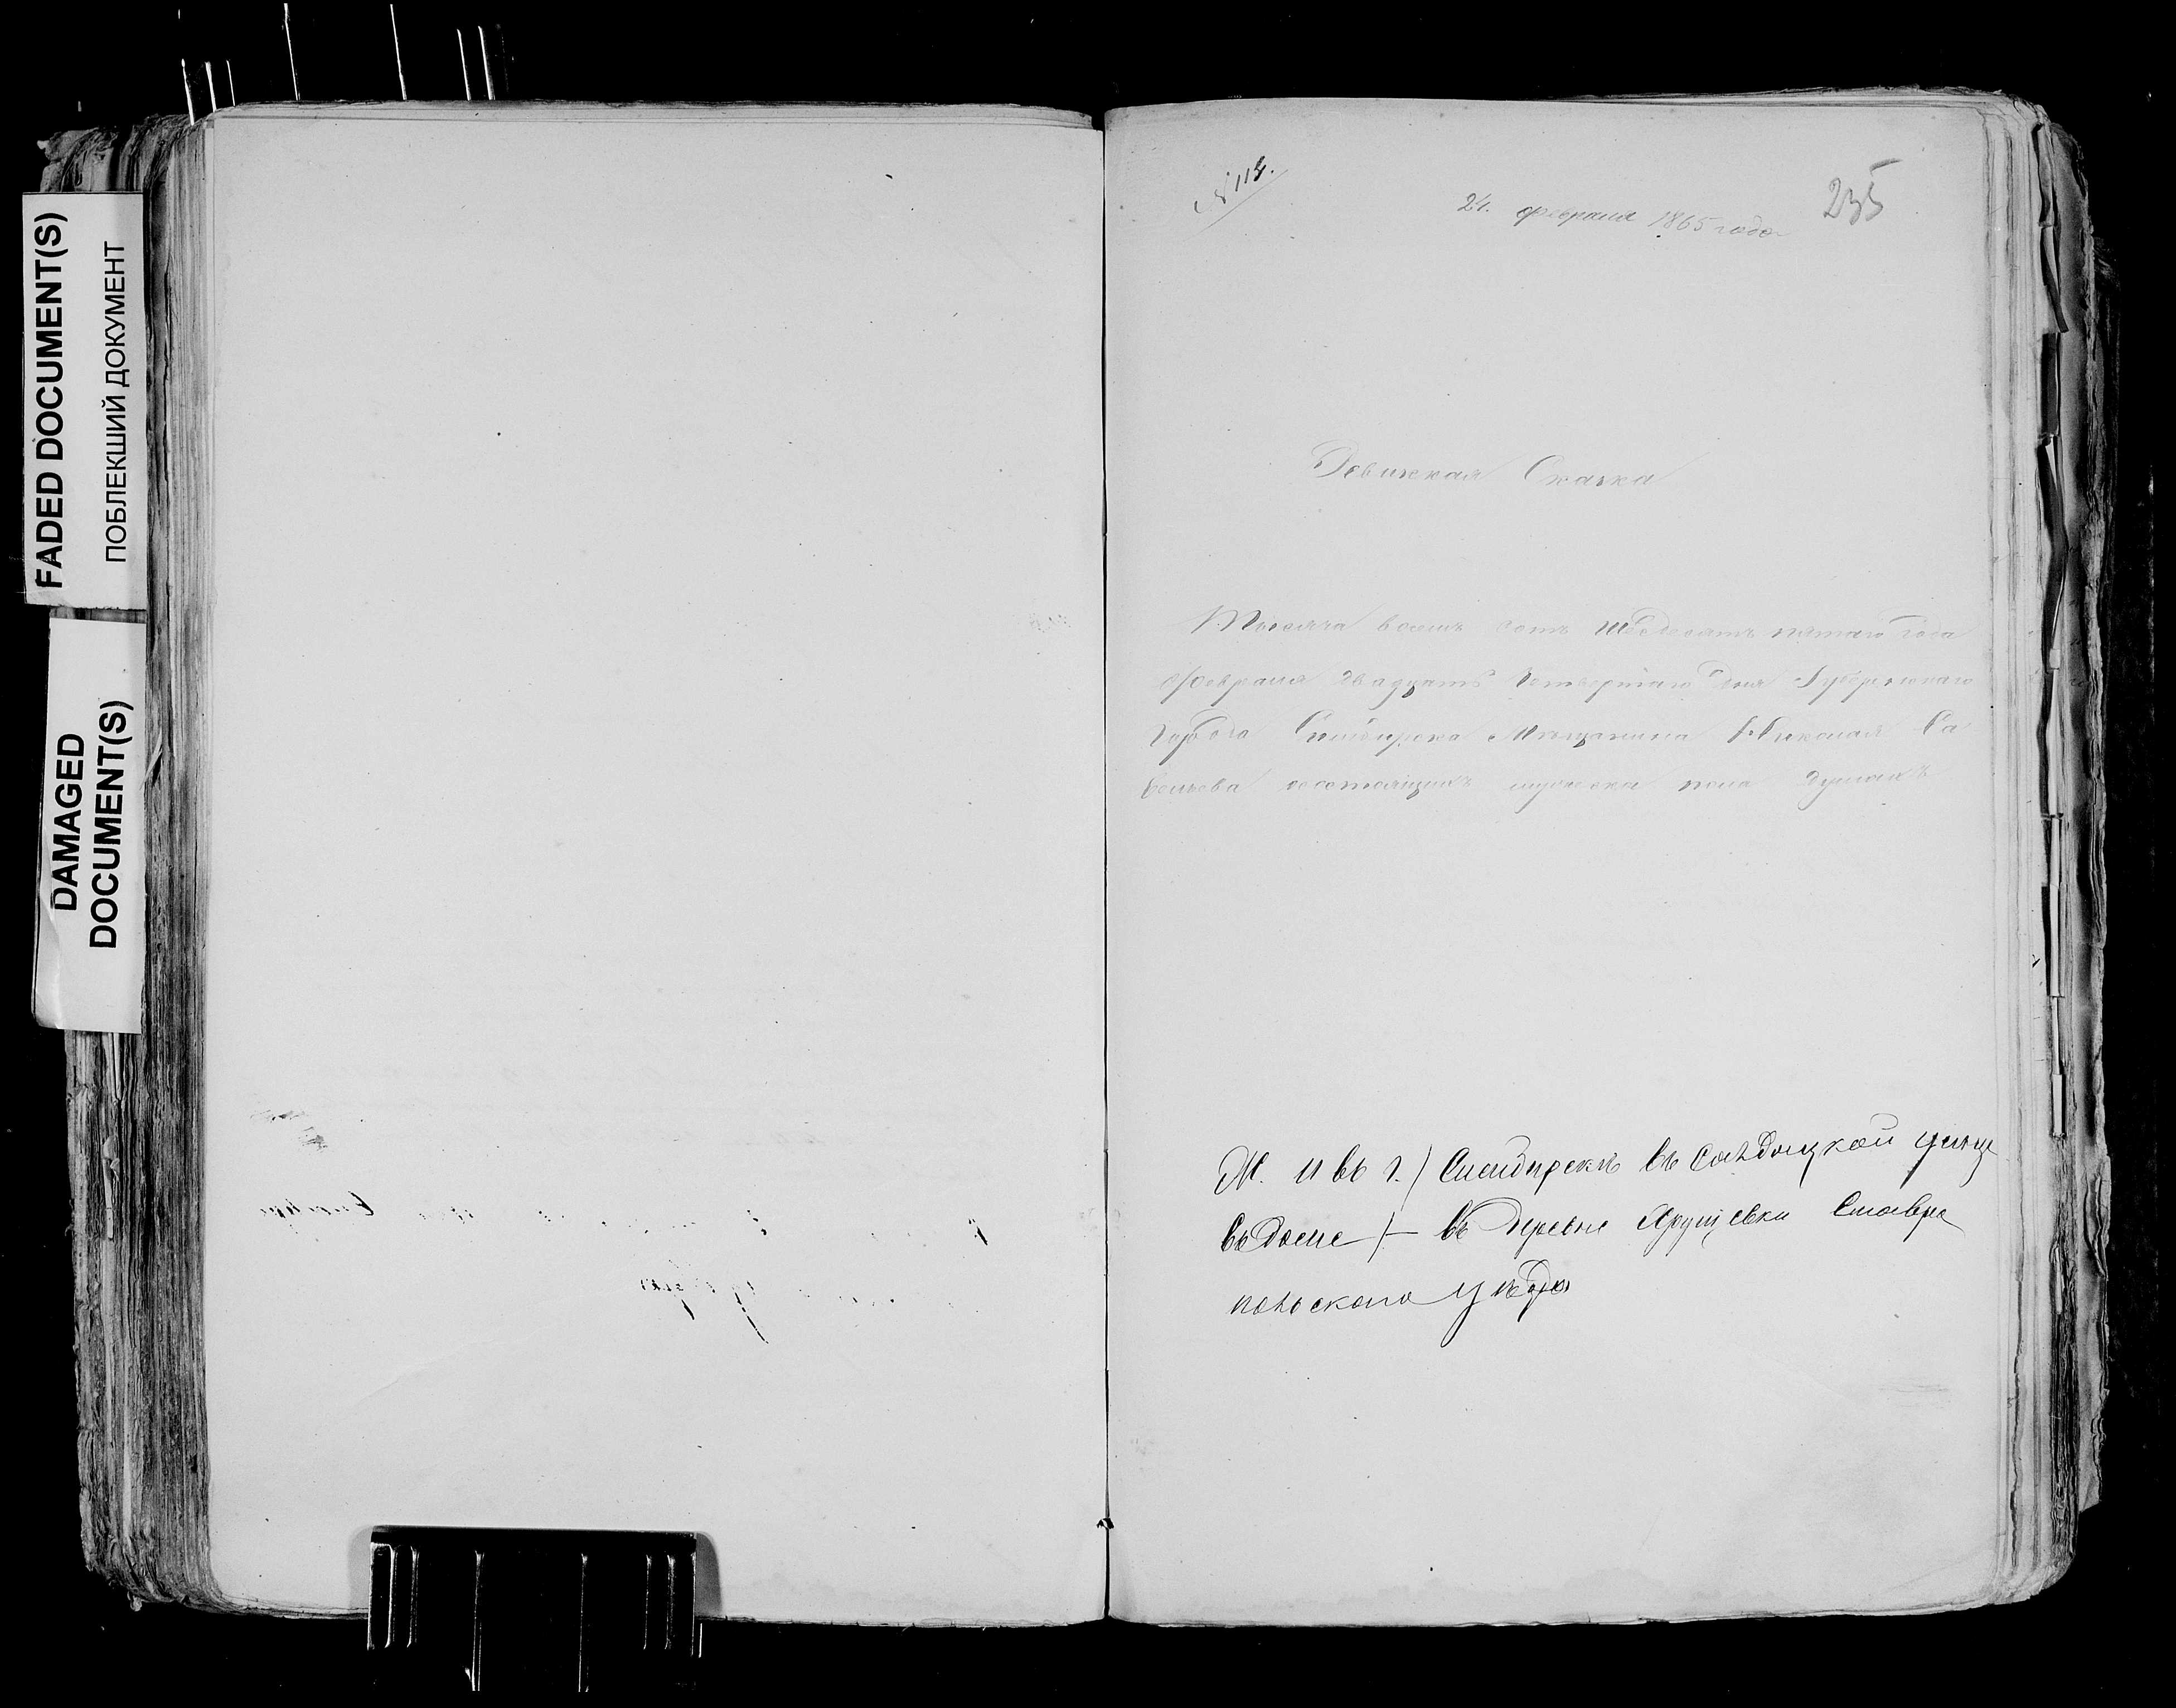 FADED DOCUMENT(S)
ПОБЛЕКШИЙ ДОКУМЕНТ
DAMAGED
DOCUMENT(S)
№ 114.
24. февраля 1865 года
235
Ревизкая Сказка
Тысяча восемь сотъ шесдесятъ пятаго года
февраля двадцать четвертаго дня Губернскаго
города Симбирска Мѣщанина Николая Са
вельева состоящихъ мужеска пола душахъ
Ж. и въ г. / Симбирскѣ въ Солдацкой улице
въ доме / — въ деревне Хрущевки Ставра
польскаго уѣзда